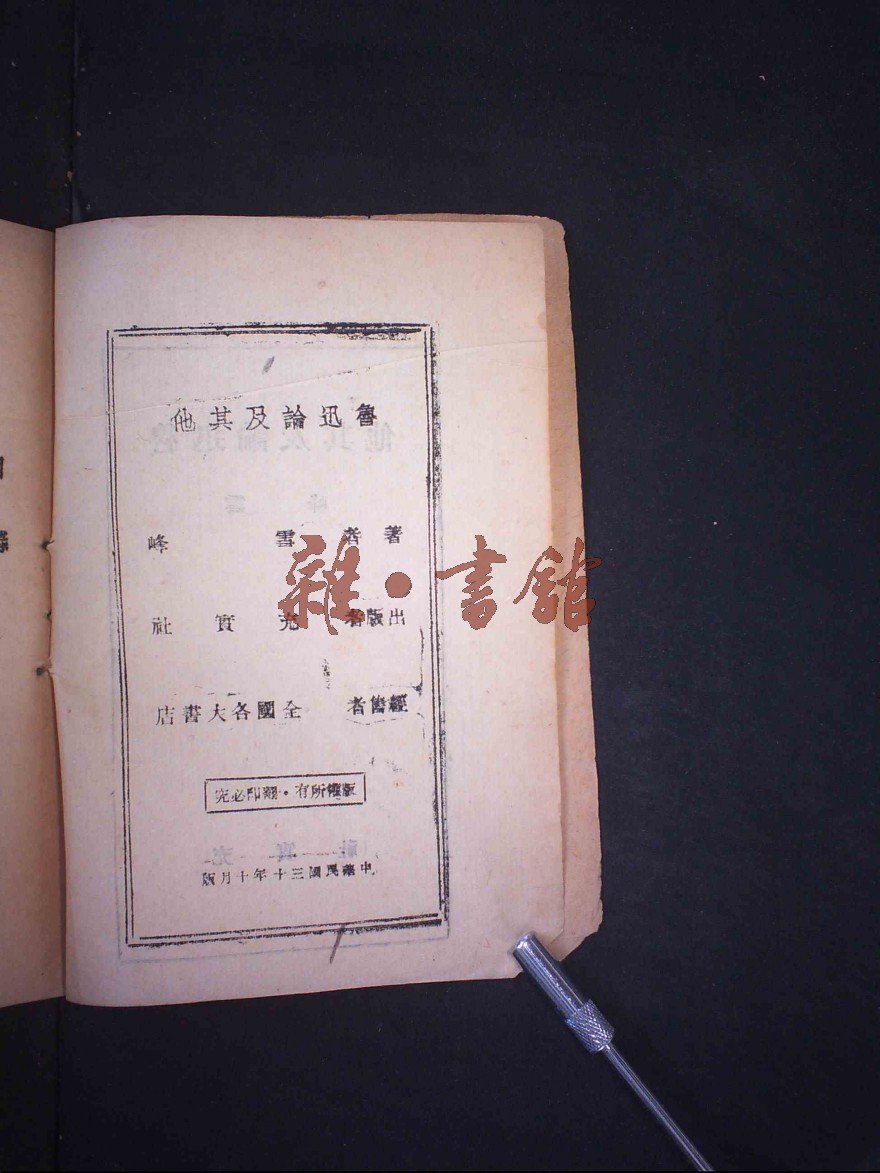 魯迅論及其他
著者 雪峰
出版者 充實社
經售者 全國各大書店
版權所有・翻印必究
中華民國三十年十月版
雜・書館